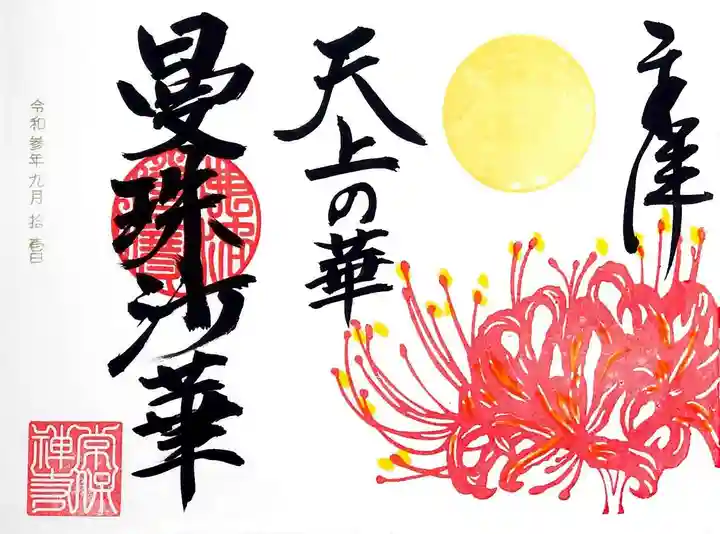 奉拝
天上の華
曼珠沙華
令和参年九月拾壱日
常保禅寺